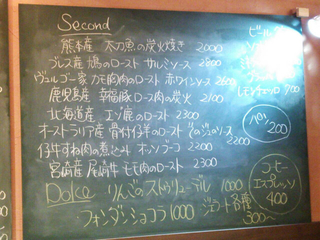 Second
熊本産 太刀魚の炭火焼き 2000
ブレス産 鳩のロースト サルミソース 2800
ヴェルゴー家 カモ胸肉のロースト 赤ワインソース 2600
鹿児島産 幸福豚ロース肉の炭火 2100
北海道産 エゾ鹿のロースト 2300
オーストラリア産 骨付仔羊のロースト そのジュのソース 2200
仔牛すね肉の煮込み オッソブーコ 2200
宮崎産 尾崎牛 モモ肉のロースト 2300
Dolce りんごのストゥリューデル 1000
フォンダンショコラ 1000 ジェラート各種 300〜
ビール
700
パン
200
コーヒー
エスプレッソ
400